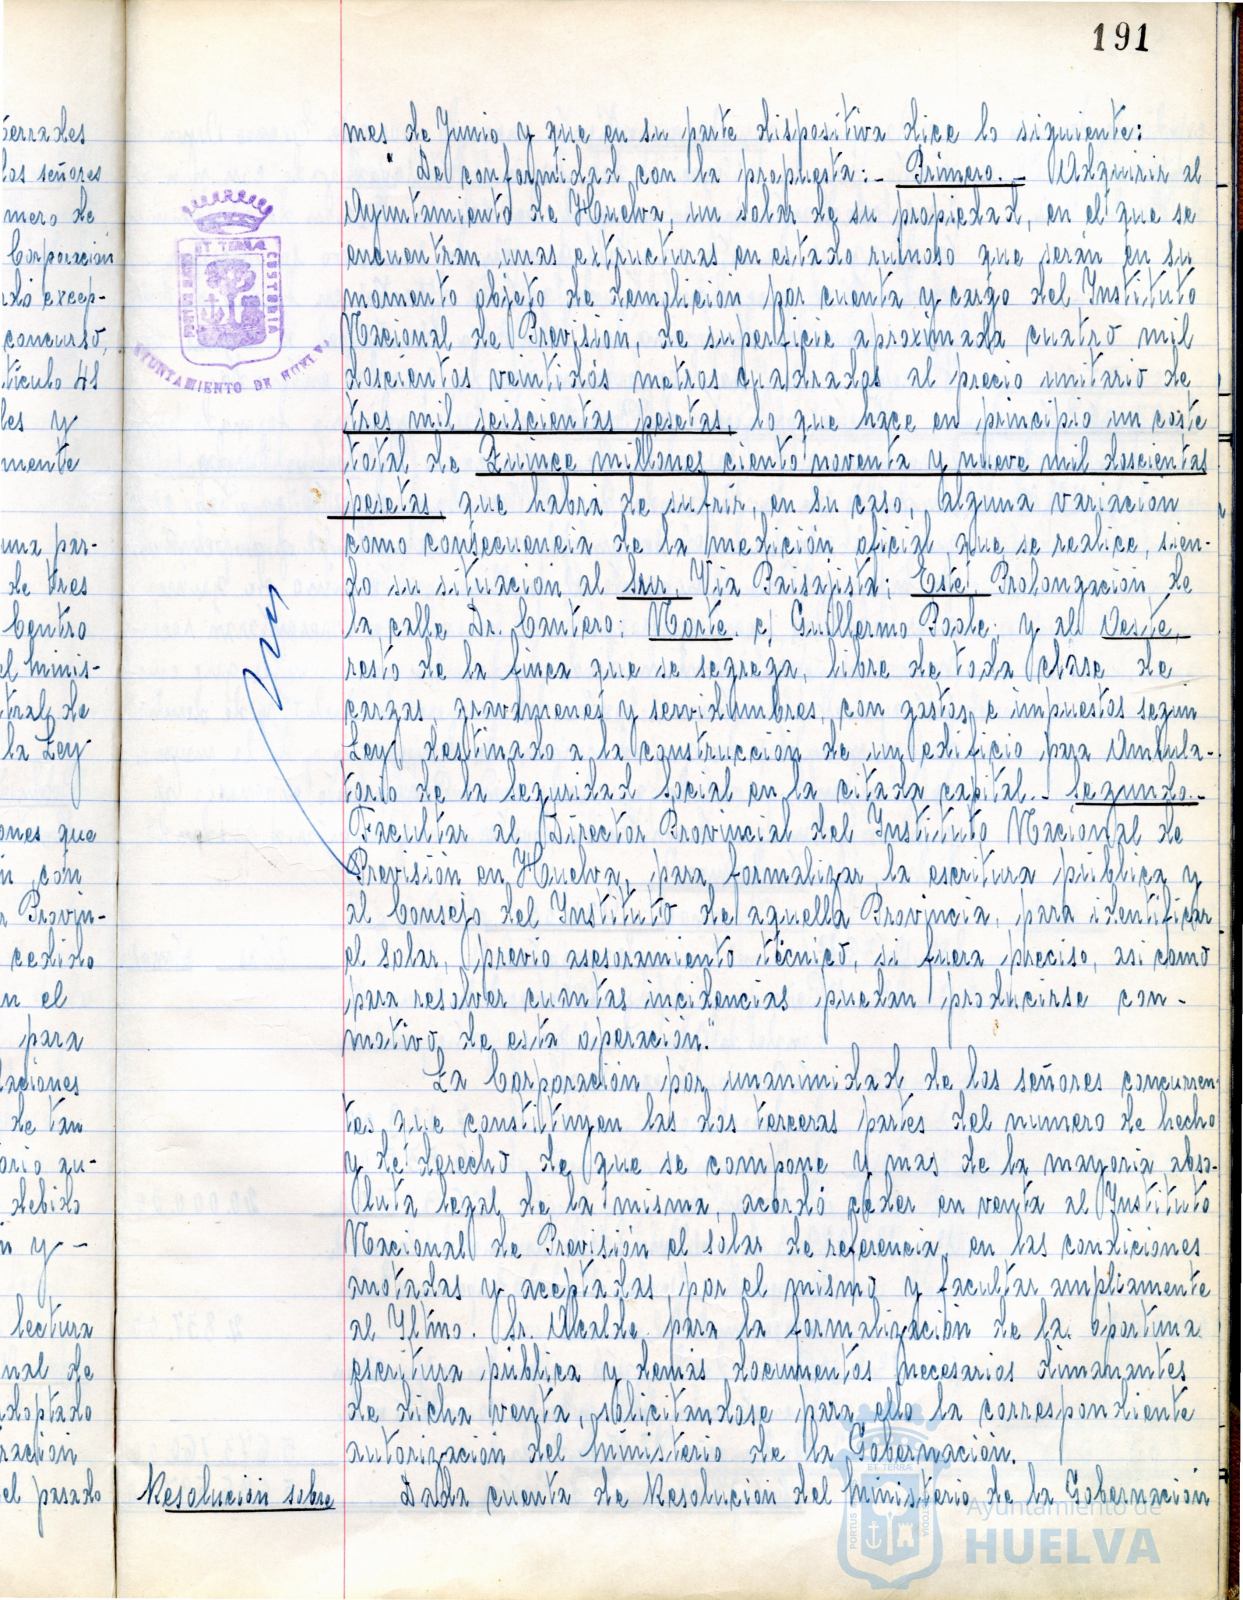 191
mes de Junio y que en su parte dispositiva dice lo siguiente:
"De conformidad con la propuesta:- Primero.- Adquirir al
Ayuntamiento de Huelva, un solar de su propiedad, en el que se
encuentran unas extructuras en estado ruinoso que serán en su
momento objeto de demolición por cuenta y cargo del Instituto
Nacional de Previsión, de superficie aproximada cuatro mil
doscientos veintidós metros cuadrados al precio unitario de
tres mil seiscientas pesetas, lo que hace en principio un coste
total de Quince millones ciento noventa y nueve mil doscientas
pesetas, que habrá de sufrir, en su caso, alguna variación
como consecuencia de la medición oficial que se realice, sien-
do su situación al Sur, Via Paisajista; Este, Prolongación de
la calle Dr. Cantero; Norte c/ Guillermo Poole; y al Oeste,
resto de la finca que se segrega, libre de toda clase de
cargas, gravamenes y servidumbres, con gastos e impuestos segun
Ley destinado a la construcción de un edificio para Ambula-
torio de la Seguridad Social en la citada capital.- Segundo.-
Facultar al Director Provincial del Instituto Nacional de
Previsión en Huelva, para formalizar la escritura pública y
al Consejo del Instituto de aquella Provincia, para identificar
el solar, previo asesoramiento técnico, si fuera preciso, asi como
para resolver cuantas incidencias puedan producirse con-
motivo de esta operación."
La Corporación por unanimidad de los señores concurren-
tes que constituyen las dos terceras partes del numero de hecho
y de derecho de que se compone y mas de la mayoria abso-
luta legal de la misma, acordó ceder en venta al Instituto
Nacional de Previsión el solar de referencia, en las condiciones
anotadas y aceptadas por el mismo y facultar ampliamente
al Iltmo. Sr. Alcalde para la formalización de la oportuna
escritura pública y demás documentos necesarios dimanantes
de dicha venta, solicitandose para ello la correspondiente
autorización del Ministerio de la Gobernación.
Resolución sobre
Dada cuenta de Resolución del Ministerio de la Gobernación
los señores
mero de
Corporación
excep-
concurso,
tículo 41
les y
mente
una par-
de tres
Centro
el Minis-
tral de
la Ley
ones que
n con
Provin-
cedido
n el
para
laciones
de tan
debido
n y -
lectura
nal de
adoptado
ración
el pasado
ET TERRAE
CUSTODIA
AYUNTAMIENTO DE HUELVA
PORTUS
ET TERRA
Ayuntamiento de
HUELVA